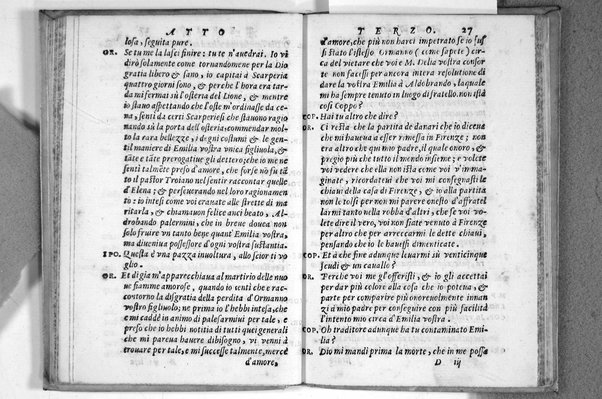 ATTO
losa, seguita pure.
OR. Se tu me la lasci finire: tu te n'auedrai. Io vi
dirò solamente come tornandomene per la Dio
gratia libero & sano, io capitai à Scarperia
quattro giorni sono, & perche l'hora era tar-
da mi fermai sù l'osteria del Lione, & mentre
io stauo aspettando che l'oste m'ordinasse da ce-
na, senti da certi Scarperiesi che stauono ragio
nando sù la porta dell'osteria, commendar mol-
to la rara bellezza, i degni costumi & le gen-
til maniere di Emilia vostra vnica figliuola, &
tāte & tāte prerogatiue gli dettero, che io me ne
senti talmēte preso d'amore, che forse nō fu tā
to il pastor Troiano nel sentir raccontar quelle
d'Elena; & perseuerando nel lor ragionamen-
to: io intesi come voi erauate alle strette di ma
ritarla, & chiamauon felice anzi beato, Al-
drobando palermini, che in breue doueua non
solo fruire vn tanto bene quant Emilia vostra,
ma diueniua possessore d'ogni vostra sustantia.
IPO. Questa è vna pazza inuoltura, allo scior ti vo
glio.
OR. Et di gia m'apparecchiaua al martirio delle nuo
ue fiamme amorose, quando io senti che e rac-
contorno la disgratia della perdita d'Ormanno
vostro figliuolo; ne prima io l'hebbi intesa, che
e mi cadde in animo di palesarmiui per tale, e
preso che io hebbi notitia di tutti quei generali
che mi pareua hauere dibisogno, vi venni à
trouare per tale, e mi successe talmente, mercè
d'amore,
TERZO. 27
d'amore, che più non harei impetrato se io fus
si stato l'istesso Ormanno (come sapete) cir-
ca del vietare che voi e M. Delia vostra consor
te non facessi per ancora intera resolutione di
dare la vostra Emilia à Aldobrando, laquale
mi ha sempre tenuto in luogo di fratello. non istà
così Coppo?
COP. Hai tu altro che dire?
OR. Ci resta che la partita de danari che io diceuo
che mi haueua a esser rimessa in Firenze; non
era altro che qui mio padre, il quale onoro, &
pregio più che tutto il mondo insieme; e volete
voi vedere che ella non istà come voi v'imma-
ginate, ricordateui che voi mi consegnasti le
chiaui della casa di Firenze, & io alla partita
non le tolsi per non mi parere onesto d'affratel
larmi tanto nella robba d'altri, che se voi vo-
lete dire il vero, voi non siate tornato à Firenze
per altro che per arrecarmi le dette chiaui,
pensando che io le hauessi dimenticate.
COP. Et à che fine adunque leuarmi sù venticinque
scudi & un cauallo?
OR. Perche voi me gl'offeristi, & io gli accettai
per dar più colore alla cosa che io poteua, &
parte per comparire più onoreuolmente innan
zi à mio padre per conseguire con più facilità
l'intento mio circa d'Emilia vostra.
COP. Oh traditore adunque ha tu contaminato Emi-
lia?
OR. Dio mi mandi prima la morte, che in me possa
D iij